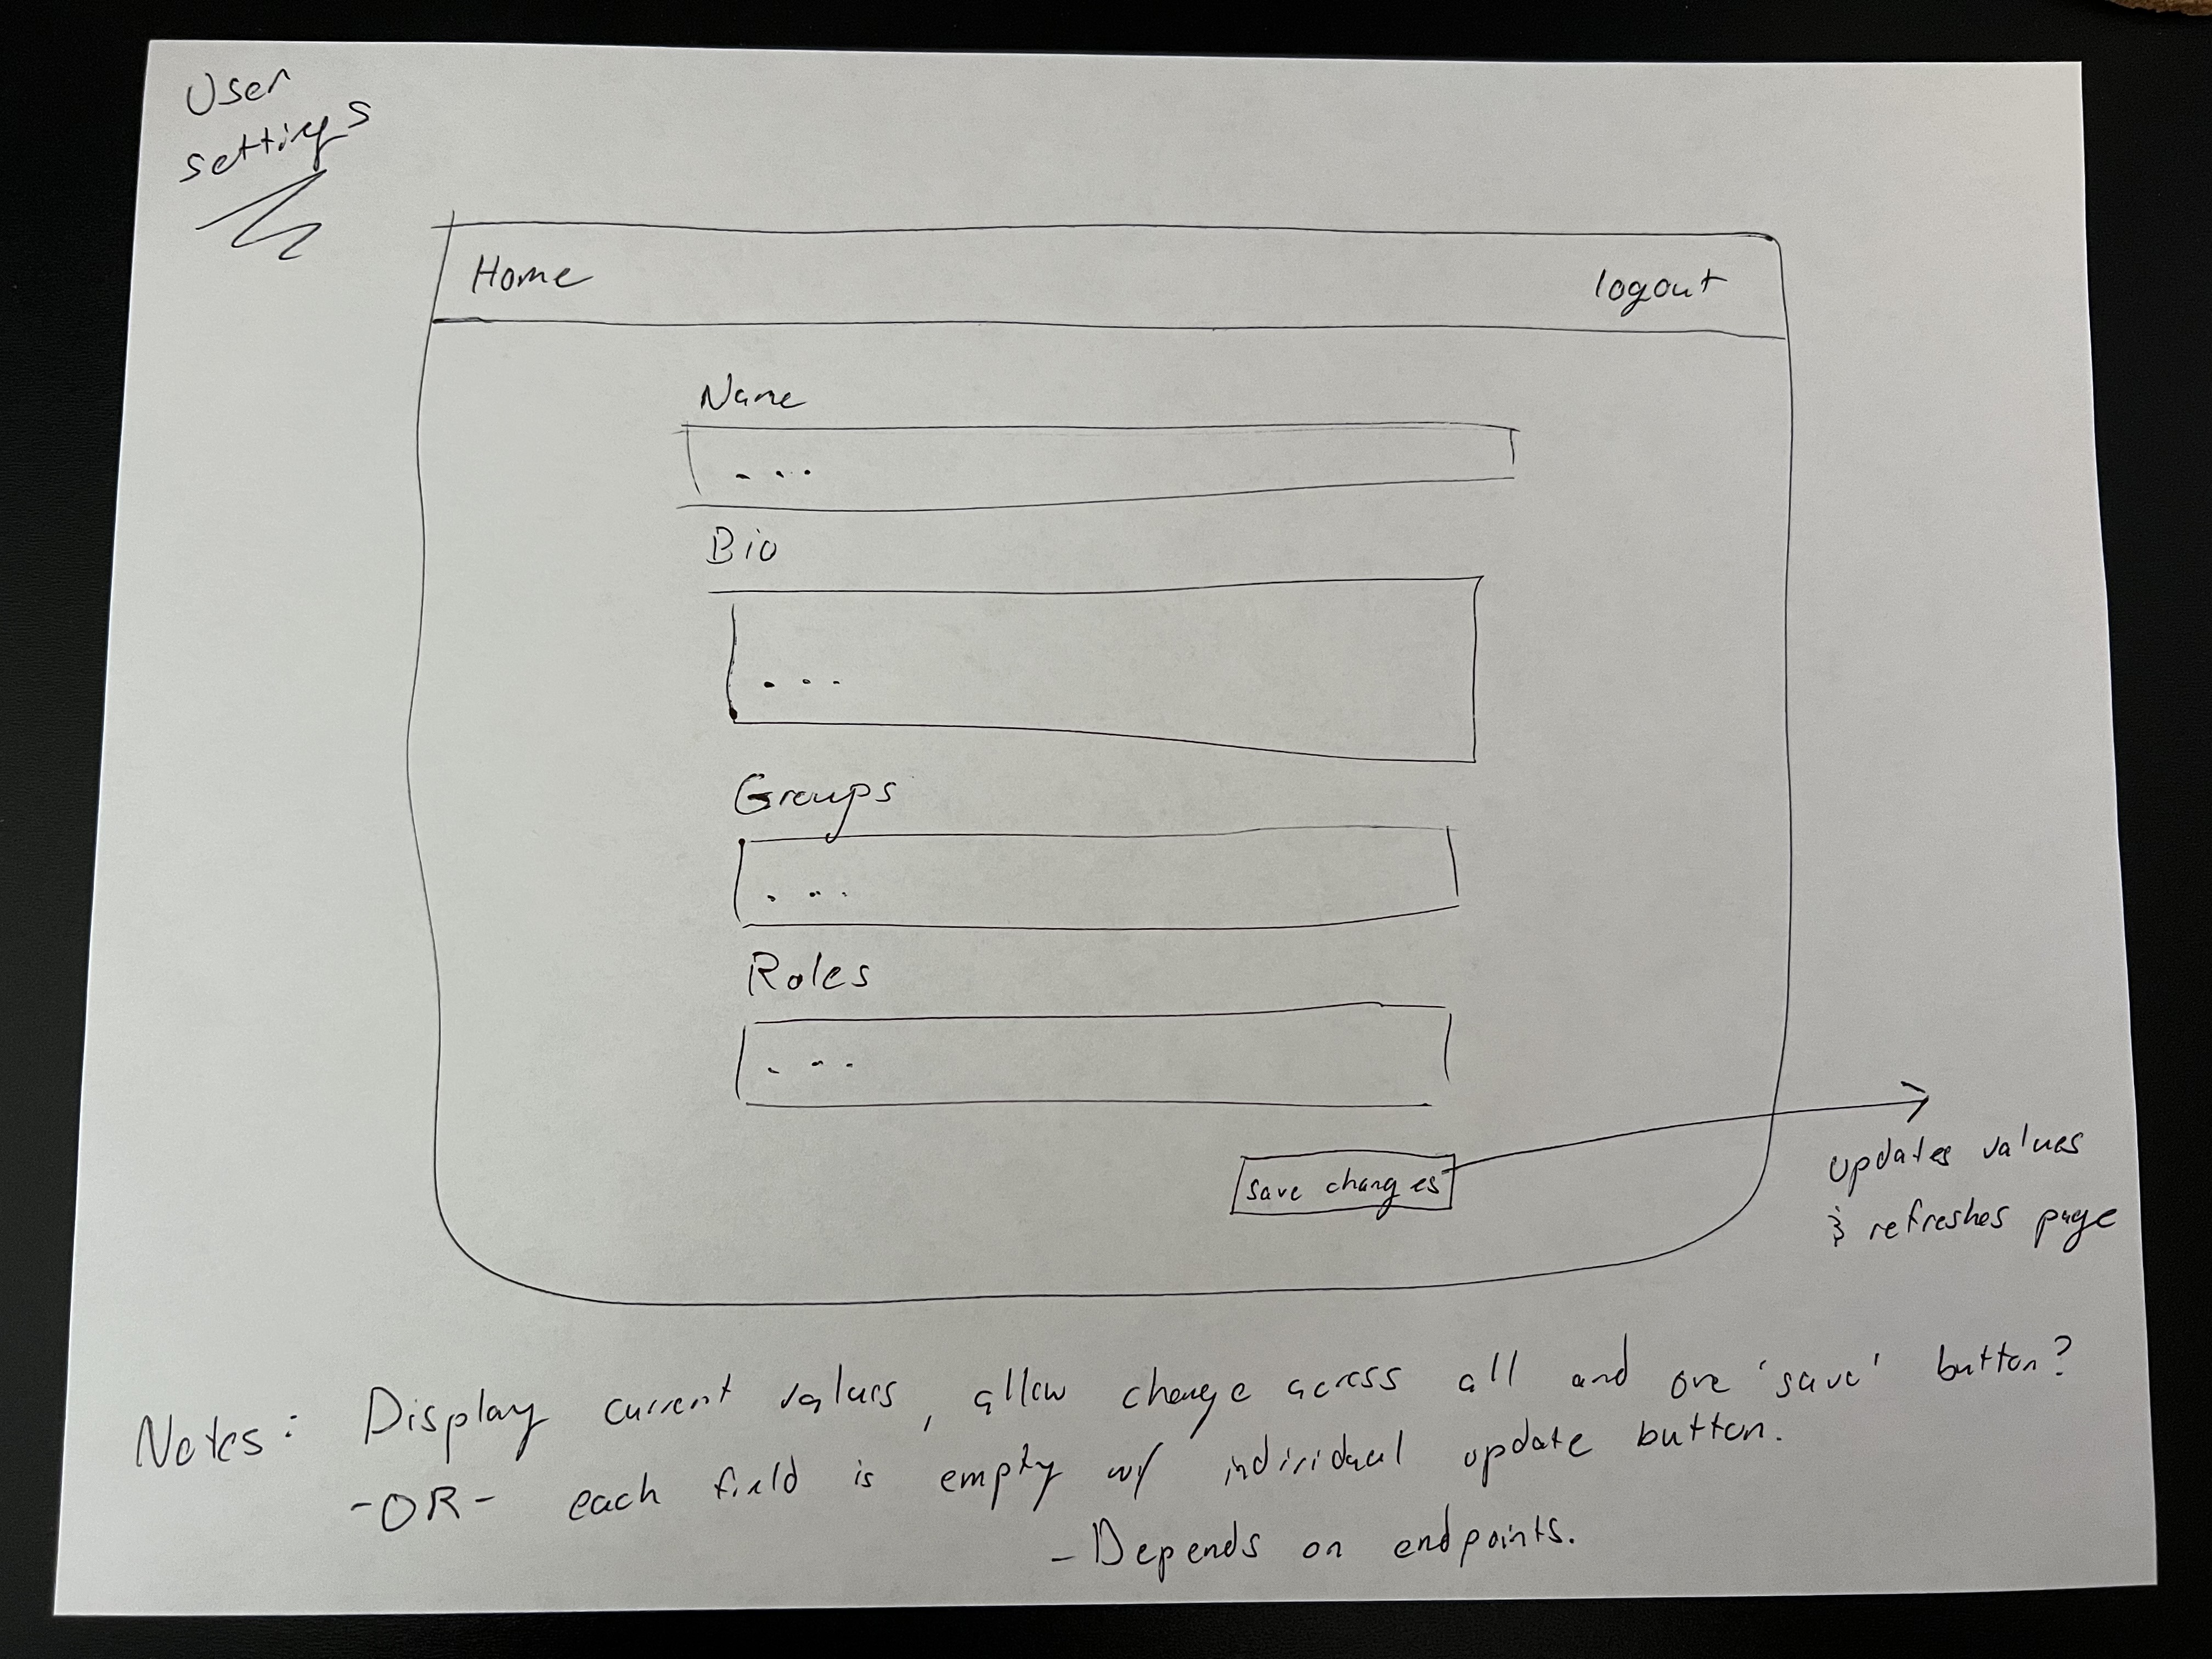 User
settings
Home
logout
Name
...
Bio
...
Groups
...
Roles
...
save changes
updates values
& refreshes page
Notes: Display current values, allow change across all and one 'save' button?
-OR- each field is empty w/ individual update button.
- Depends on endpoints.